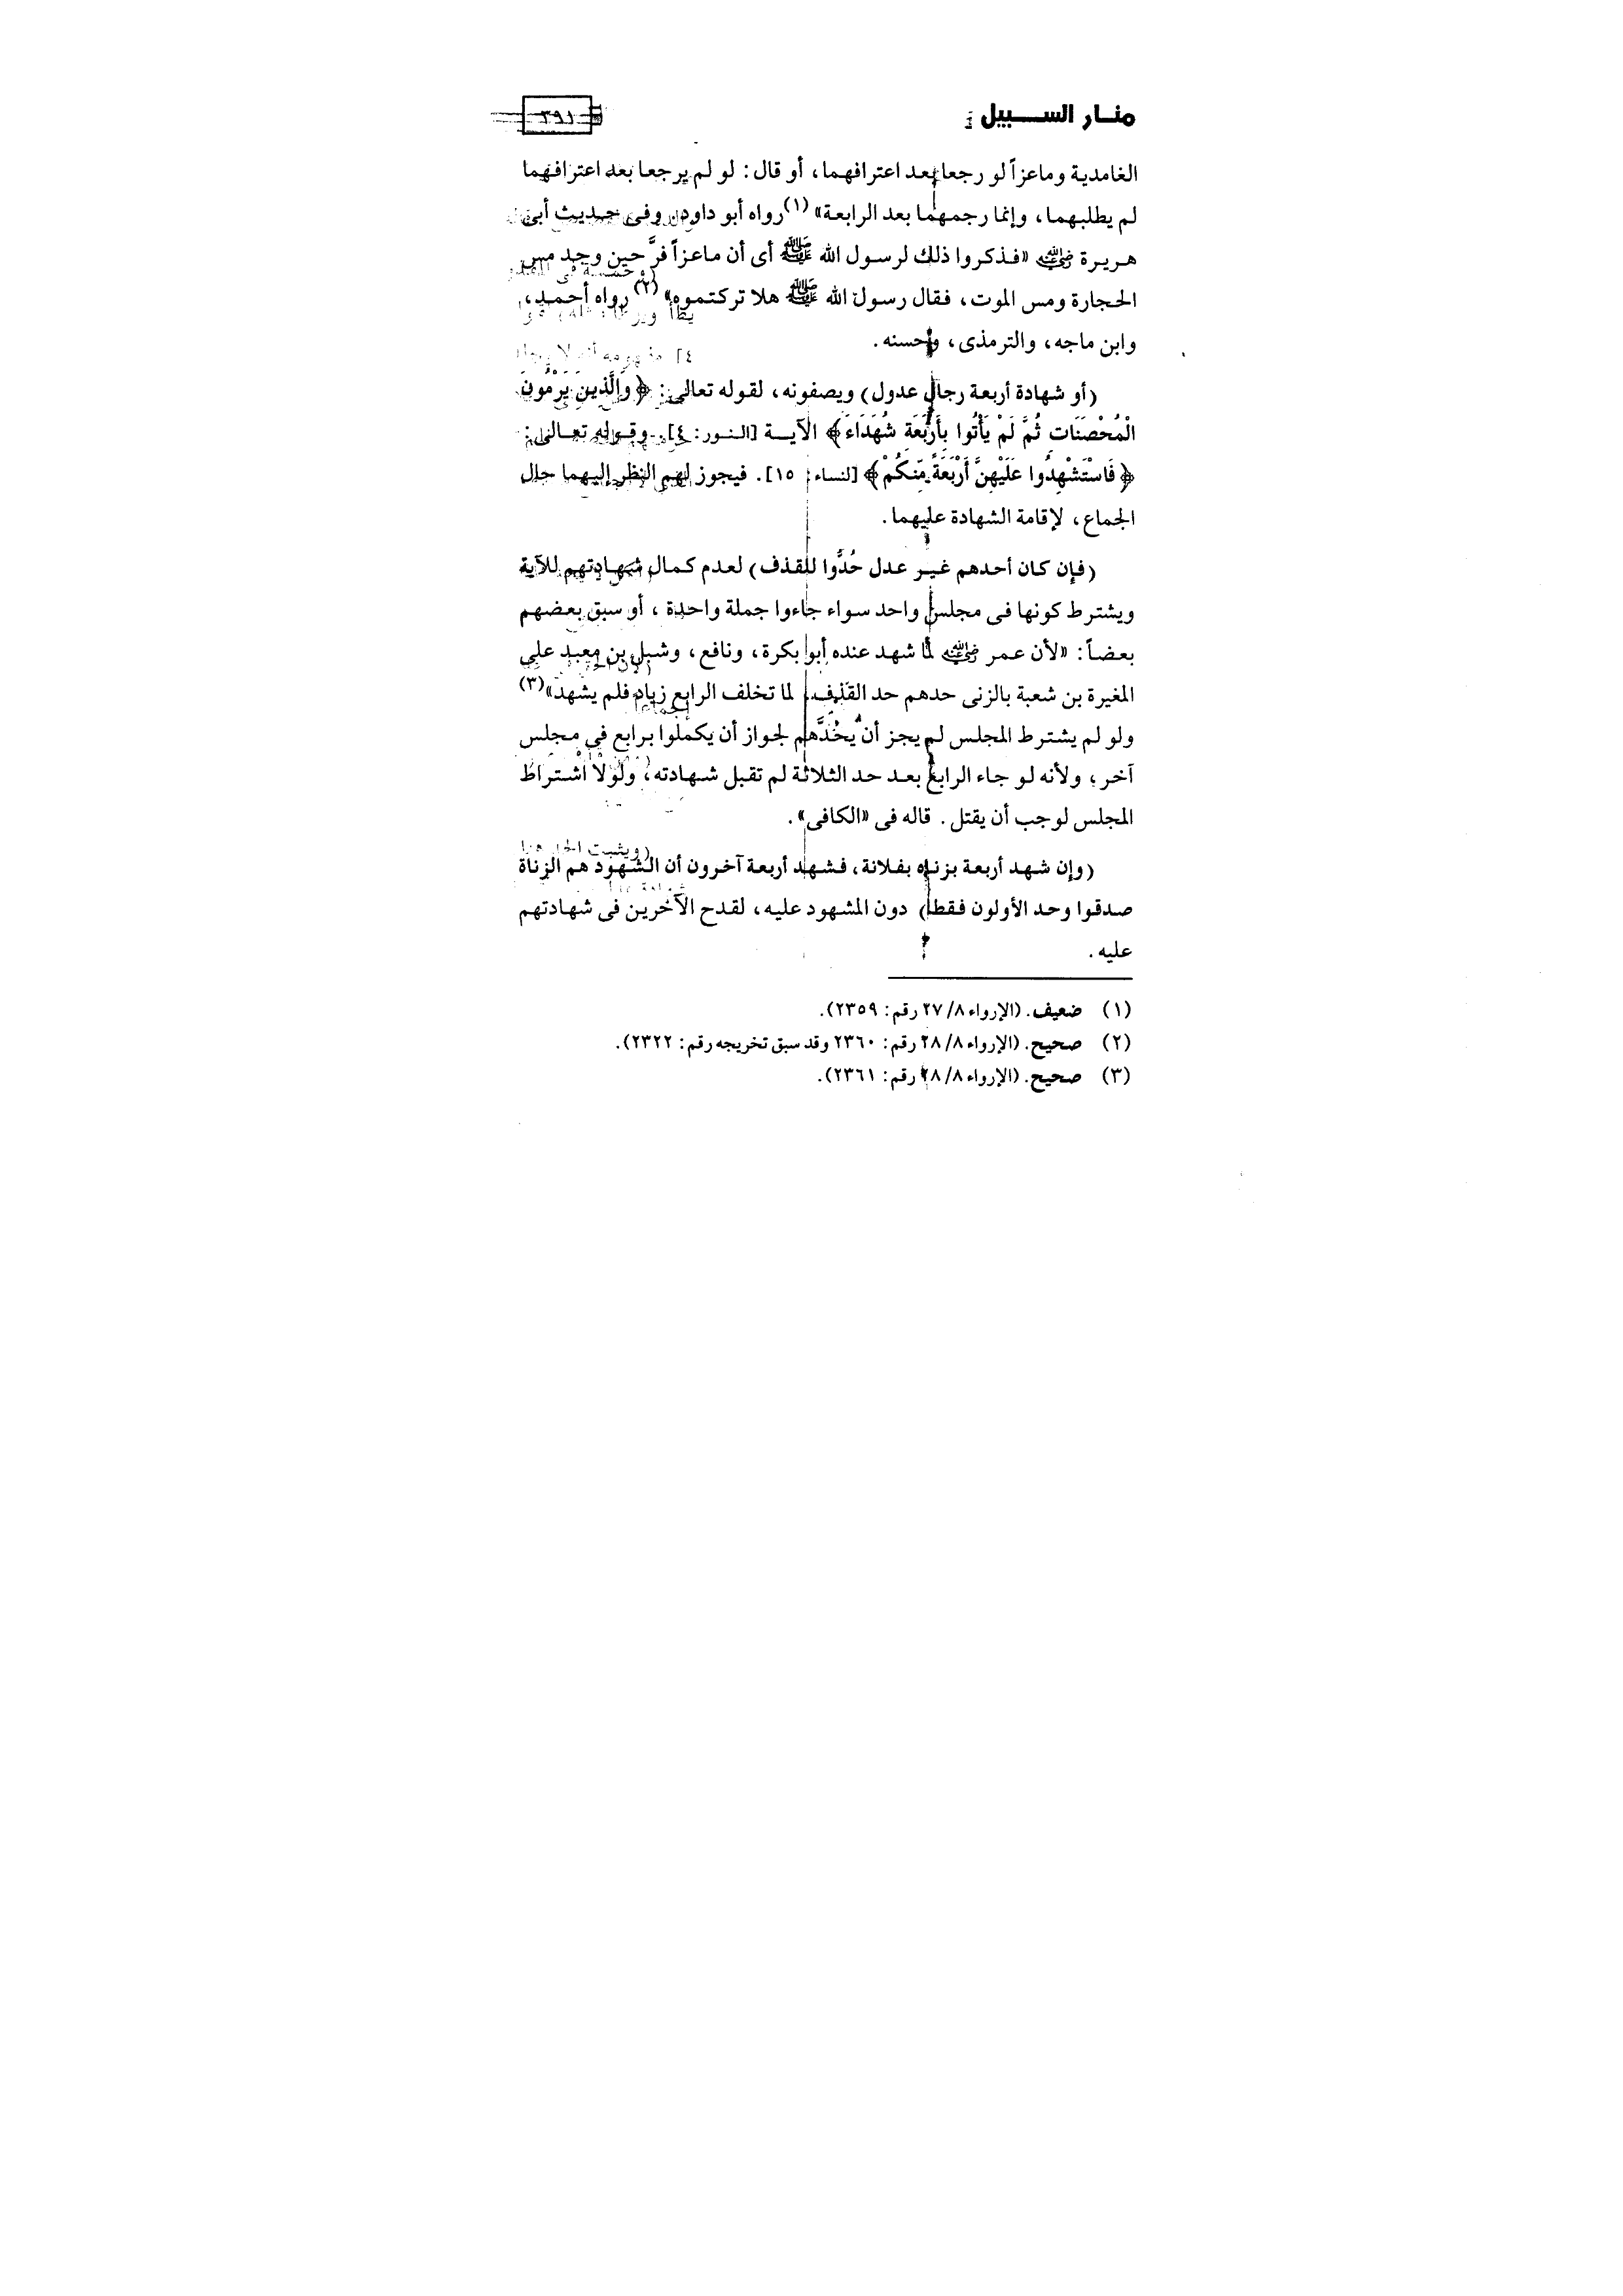 منار السبيل
٣٩١
الغامدية وماعزاً لو رجعا بعد اعترافهما، أو قال: لو لم يرجعا بعد اعترافهما
لم يطلبهما، وإنما رجمهما بعد الرابعة» (١) رواه أبو داود. وفى حديث أبى
هريرة رضي الله عنه «فذكروا ذلك لرسول الله ﷺ أى أن ماعزاً فرَّ حين وجد مس
الحجارة ومس الموت، فقال رسول الله ﷺ هلا تركتموه» (٢) رواه أحمد،
وابن ماجه، والترمذى، وحسنه.
(أو شهادة أربعة رجال عدول) ويصفونه، لقوله تعالى: ﴿وَالَّذِينَ يَرْمُونَ
الْمُحْصَنَاتِ ثُمَّ لَمْ يَأْتُوا بِأَرْبَعَةِ شُهَدَاءَ﴾ الآية [النور: ٤]. وقوله تعالى:
﴿فَاسْتَشْهِدُوا عَلَيْهِنَّ أَرْبَعَةً مِّنكُمْ﴾ [لنساء: ١٥]. فيجوز لهم النظر إليهما حال
الجماع، لإقامة الشهادة عليهما.
(فإن كان أحدهم غير عدل حُدُّوا للقذف) لعدم كمال شهادتهم للآية
ويشترط كونها فى مجلس واحد سواء جاءوا جملة واحدة، أو سبق بعضهم
بعضاً: «لأن عمر رضي الله عنه لما شهد عنده أبو بكرة، ونافع، وشبل بن معبد على
المغيرة بن شعبة بالزنى حدهم حد القذف، لما تخلف الرابع زياد فلم يشهد» (٣)
ولو لم يشترط المجلس لم يجز أن يحُدَّهم لجواز أن يكملوا برابع فى مجلس
آخر؛ ولأنه لو جاء الرابع بعد حد الثلاثة لم تقبل شهادته، ولولا اشتراط
المجلس لوجب أن يقتل. قاله فى «الكافى».
(وإن شهد أربعة بزناه بفلانة، فشهد أربعة آخرون أن الشهود هم الزناة
صدقوا وحد الأولون فقط) دون المشهود عليه، لقدح الآخرين فى شهادتهم
عليه.
(١) ضعيف. (الإرواء ٨/ ٢٧ رقم: ٢٣٥٩).
(٢) صحيح. (الإرواء ٨/ ٢٨ رقم: ٢٣٦٠ وقد سبق تخريجه رقم: ٢٣٢٢).
(٣) صحيح. (الإرواء ٨/ ٢٨ رقم: ٢٣٦١).